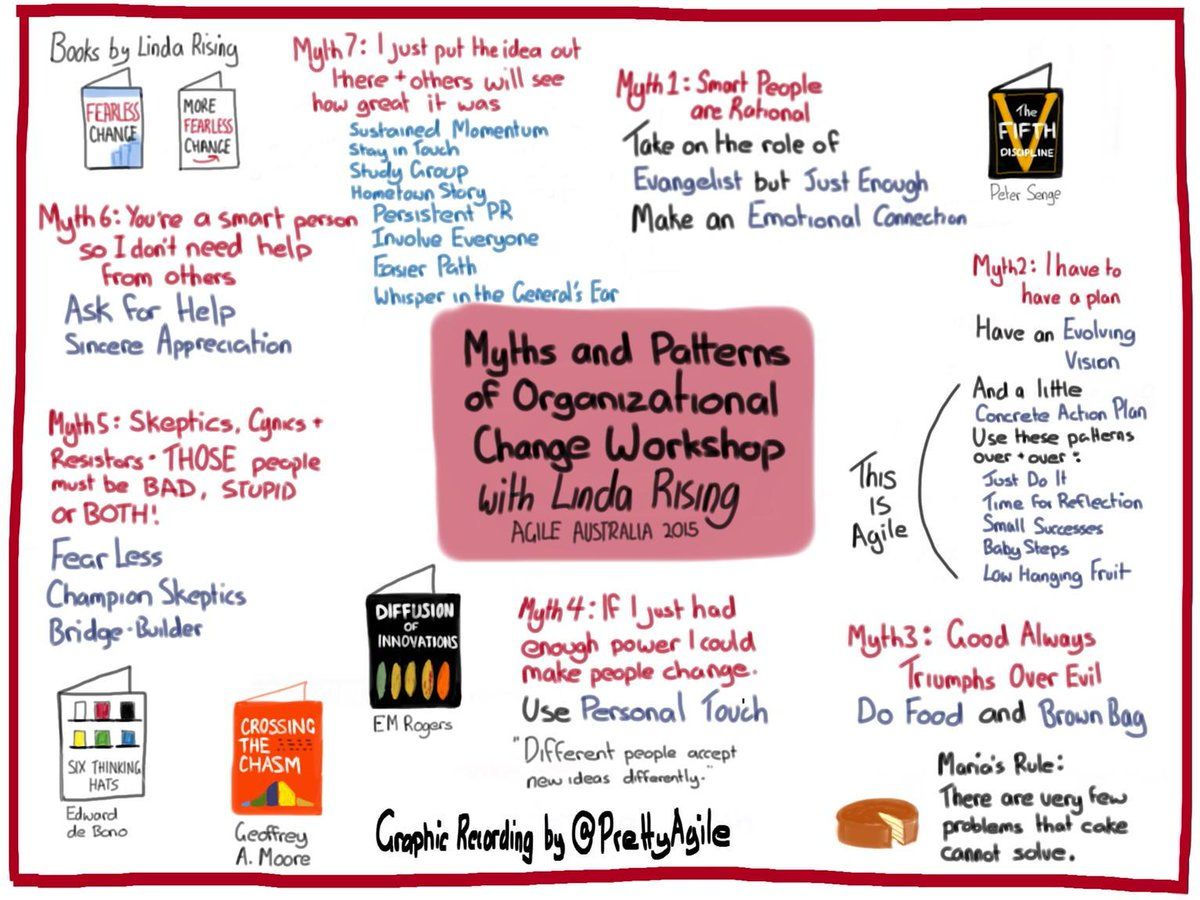 Myths and Patterns
of Organizational
Change Workshop
with Linda Rising
AGILE AUSTRALIA 2015
Myth 1: Smart People
are Rational
Take on the role of
Evangelist but Just Enough
Make an Emotional Connection
The
FIFTH
DISCIPLINE
Peter Senge
Myth 2: I have to
have a plan
Have an Evolving
Vision
And a little
Concrete Action Plan
Use these patterns
over + over:
Just Do It
Time for Reflection
Small Successes
Baby Steps
Low Hanging Fruit
This
IS
Agile
Myth 3: Good Always
Triumphs Over Evil
Do Food and Brown Bag
Maria's Rule:
There are very few
problems that cake
cannot solve.
Myth 4: If I just had
enough power I could
make people change.
Use Personal Touch
"Different people accept
new ideas differently."
DIFFUSION
OF
INNOVATIONS
EM Rogers
Myth 5: Skeptics, Cynics +
Resistors. THOSE people
must be BAD, STUPID
or BOTH!
Fear Less
Champion Skeptics
Bridge-Builder
SIX THINKING
HATS
Edward
de Bono
CROSSING
THE
CHASM
Geoffrey
A. Moore
Myth 6: You're a smart person
so I don't need help
from others
Ask for Help
Sincere Appreciation
Books by Linda Rising
FEARLESS
CHANGE
MORE
FEARLESS
CHANGE
Myth 7: I just put the idea out
there + others will see
how great it was
Sustained Momentum
Stay in Touch
Study Group
Hometown Story
Persistent PR
Involve Everyone
Easier Path
Whisper in the General's Ear
Graphic Recording by @PrettyAgile